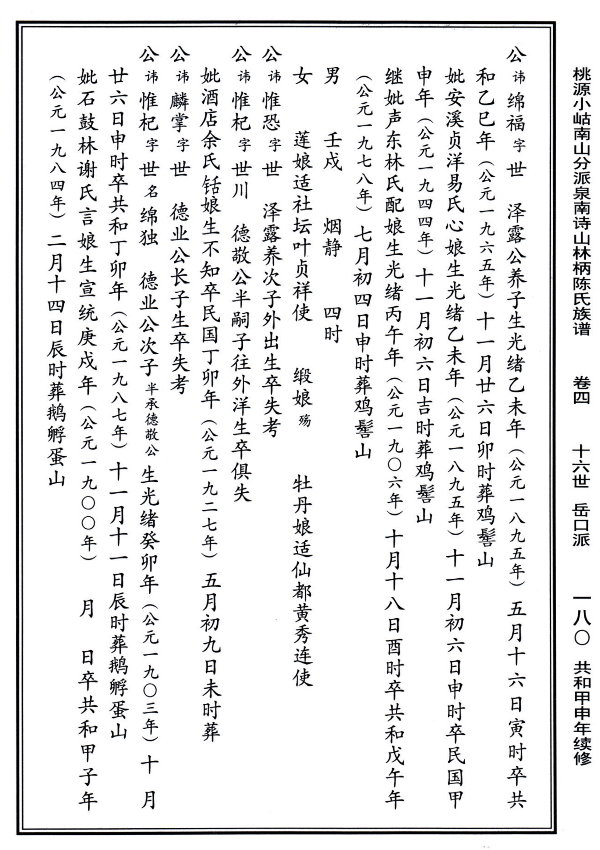 桃源小岵南山分派泉南诗山林柄陈氏族谱 卷四 十六世 岳口派 一八〇 共和甲申年续修
公讳绵福字世 泽露公养子生光绪乙未年（公元一八九五年）五月十六日寅时卒共
和乙巳年（公元一九六五年）十一月廿六日卯时葬鸡髻山
妣安溪贞洋易氏心娘生光绪乙未年（公元一八九五年）十一月初六日申时卒民国甲
申年（公元一九四四年）十一月初六日吉时葬鸡髻山
继妣声东林氏配娘生光绪丙午年（公元一九〇六年）十月十八日酉时卒共和戊午年
（公元一九七八年）七月初四日申时葬鸡髻山
男 壬戍 烟静 四时
女 莲娘适社坛叶贞祥使 缎娘殇 牡丹娘适仙都黄秀连使
公讳惟恐字世 泽露养次子外出生卒失考
公讳惟杞字世川 德敬公半嗣子往外洋生卒俱失
妣酒店余氏铦娘生不知卒民国丁卯年（公元一九二七年）五月初九日未时葬
公讳麟掌字世 德业公长子生卒失考
公讳惟杞字世名绵独 德业公次子半承德敬公生光绪癸卯年（公元一九〇三年）十月
廿六日申时卒共和丁卯年（公元一九八七年）十一月十一日辰时葬鹅孵蛋山
妣石鼓林谢氏言娘生宣统庚戌年（公元一九〇〇年） 月 日卒共和甲子年
（公元一九八四年）二月十四日辰时葬鹅孵蛋山